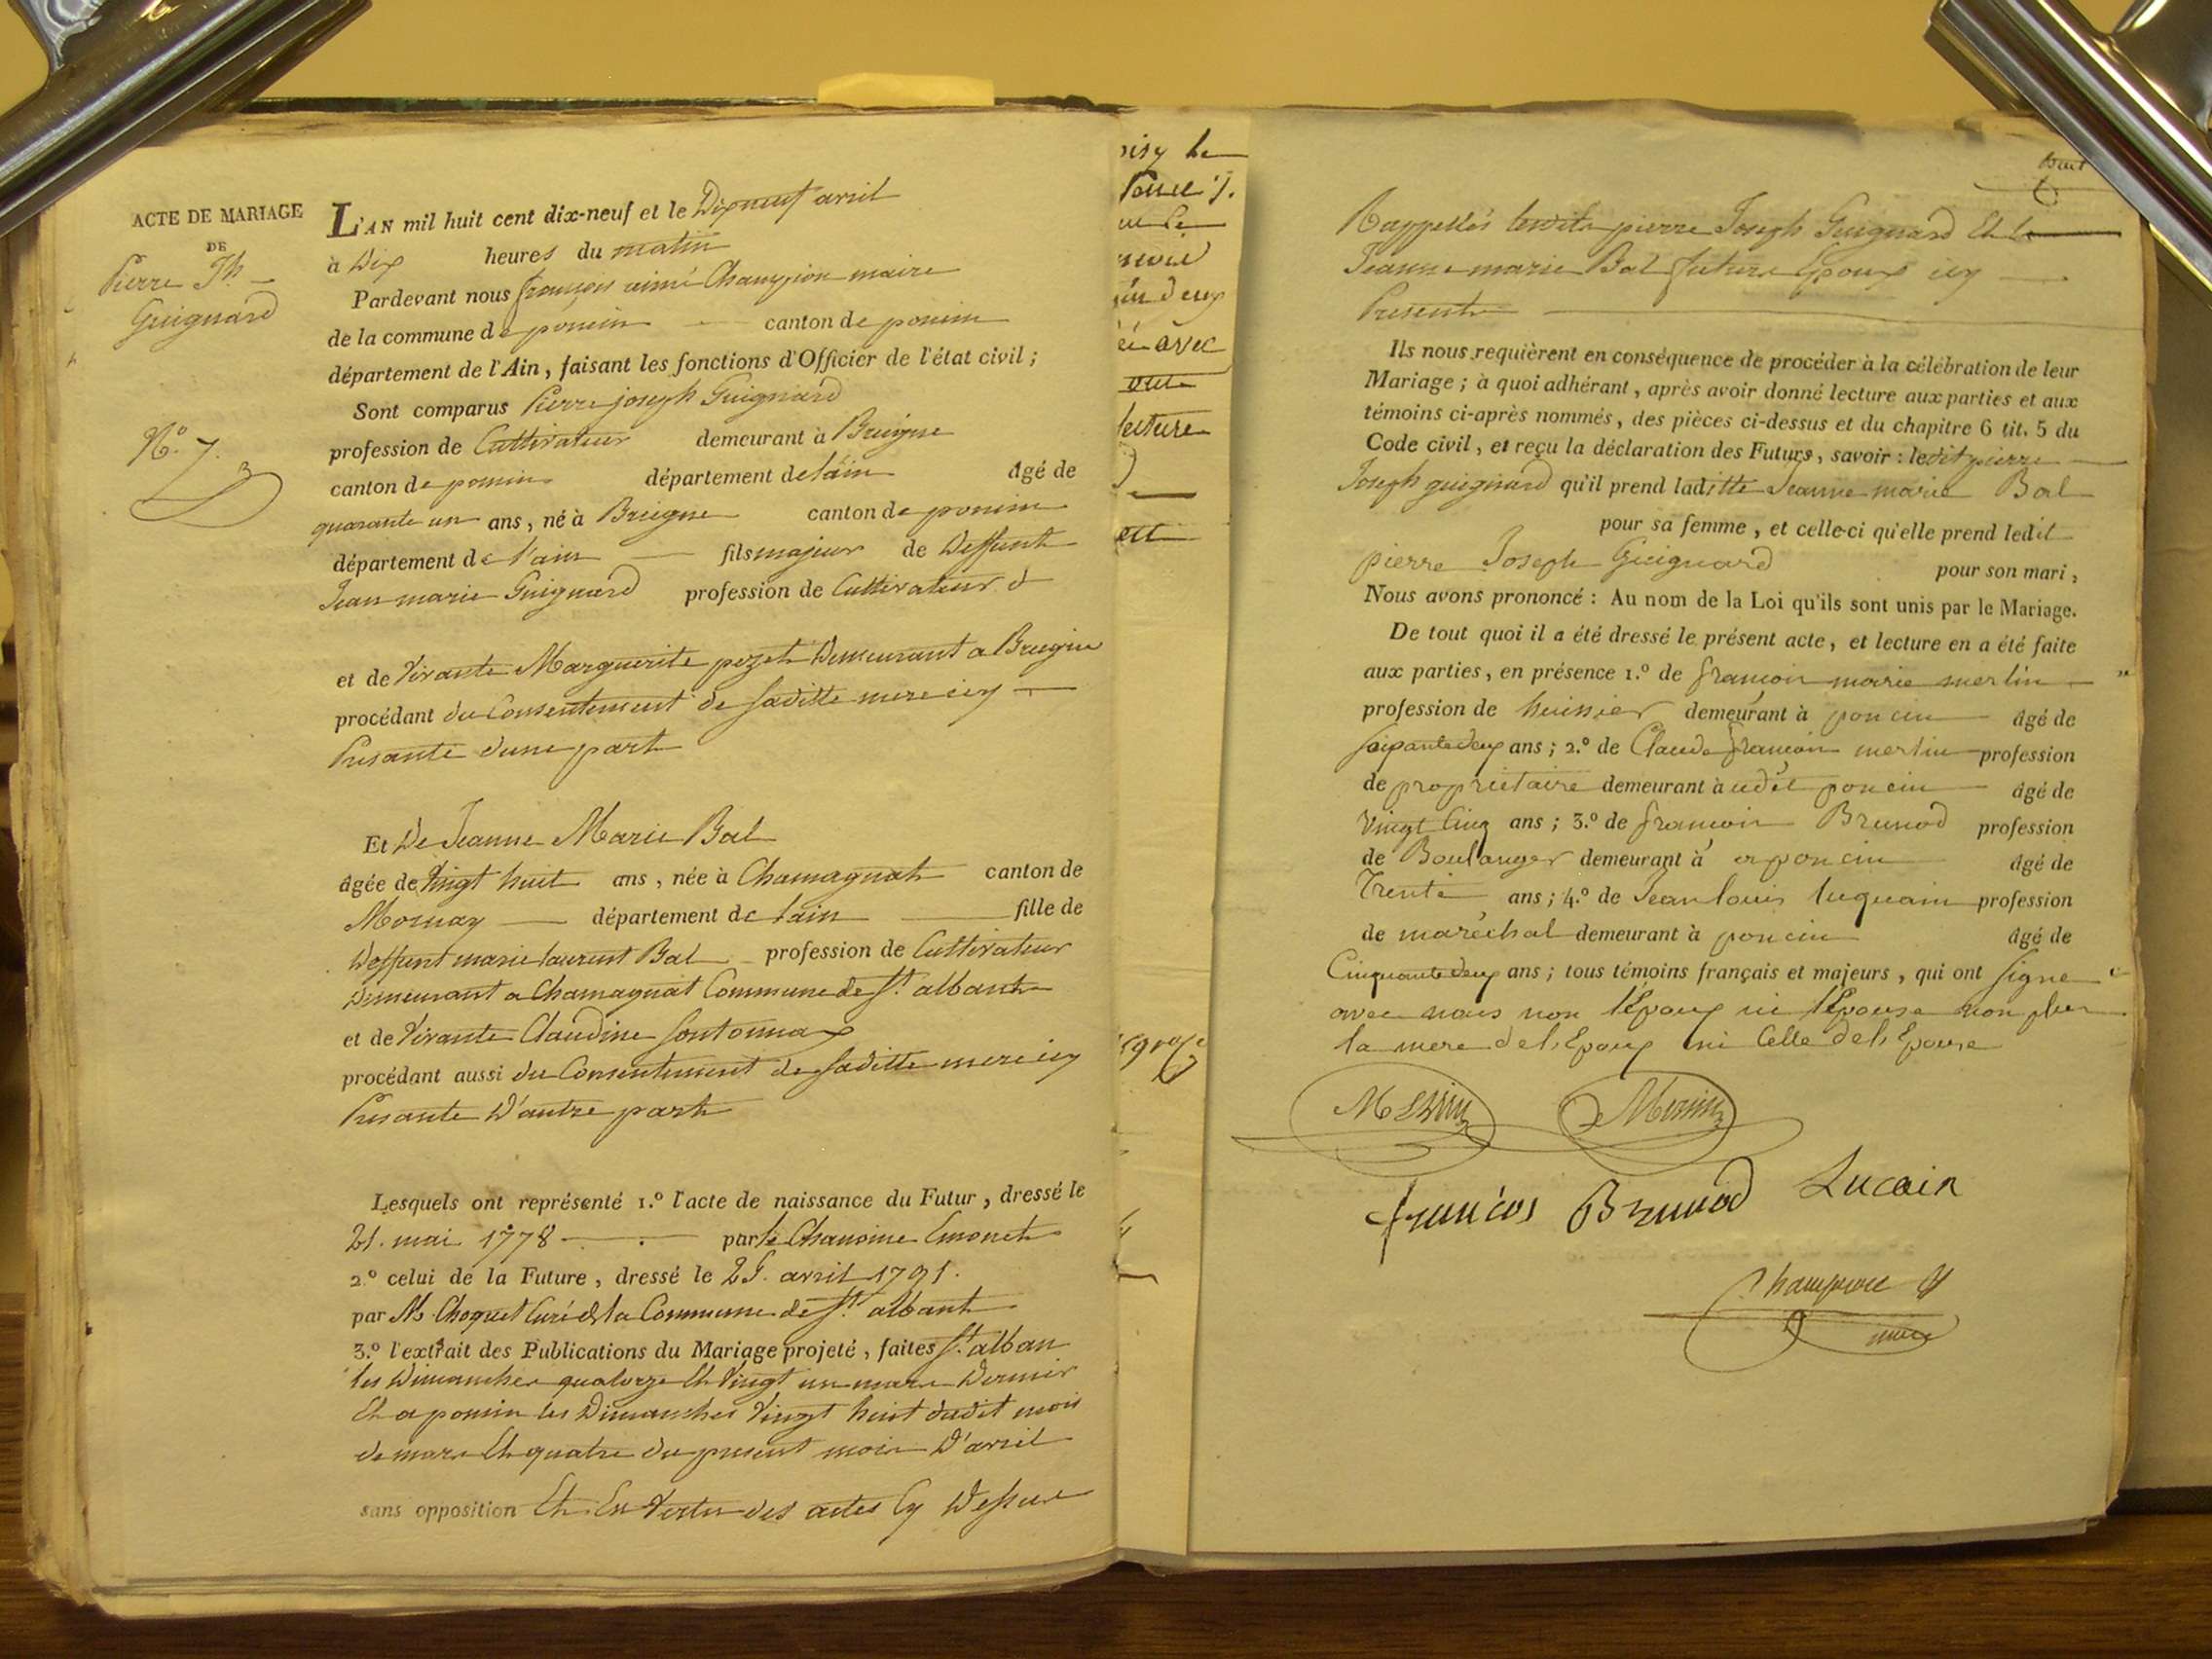 ACTE DE MARIAGE
DE
Pierre Jh
Guignard
N.° 7.
L'AN mil huit cent dix-neuf et le Dixneuf avril
à Dix heures du matin
Pardevant nous françois aimé Champion maire
de la commune de poncin canton de poncin
département de l'Ain, faisant les fonctions d'Officier de l'état civil ;
Sont comparus Pierre joseph Guignard
profession de Cultivateur demeurant à Breigne
canton de poncin département de lain âgé de
quarante un ans, né à Breigne canton de poncin
département de l'ain fils majeur de Deffunt
Jean marie Guignard profession de Cultivateur
et de Vivante Marguerite pezet Demeurant a Breigne
procédant du Consentement de saditte mere icy
Presante dune part
Et De Jeanne Marie Bal
âgée de Vingt huit ans, née à Chamagnat canton de
Mornay département de lain fille de
Deffunt marie laurent Bal profession de Cultivateur
Demeurant a Chamagnat Commune de St. albant
et de Vivante Claudine Sontonnax
procédant aussi du Consentement de saditte mere icy
Presante D'autre part
Lesquels ont représenté 1.° l'acte de naissance du Futur, dressé le
21. mai 1778 par le Chanoine Emonet
2.° celui de la Future, dressé le 25. avril 1791.
par M. Choquet Curé de la Commune de St. albant
3.° l'extrait des Publications du Mariage projeté, faites St. alban
les Dimanches quatorze Et Vingt un mars Dernier
Et a poncin les Dimanches Vingt huit dudit mois
de mars Et quatre du present mois D'avril
sans opposition Et En Vertu des actes Cy Dessus
isy
deux
avec
lecture
huit
Rappellés lesdits pierre Joseph Guignard Et
Jeanne marie Bal futurs Epoux icy
Presents
Ils nous requièrent en conséquence de procéder à la célébration de leur
Mariage ; à quoi adhérant, après avoir donné lecture aux parties et aux
témoins ci-après nommés, des pièces ci-dessus et du chapitre 6 tit. 5 du
Code civil, et reçu la déclaration des Futurs, savoir : ledit pierre
Joseph guignard qu'il prend laditte Jeanne marie Bal
pour sa femme, et celle-ci qu'elle prend ledit
pierre Joseph Guignard pour son mari,
Nous avons prononcé : Au nom de la Loi qu'ils sont unis par le Mariage.
De tout quoi il a été dressé le présent acte, et lecture en a été faite
aux parties, en présence 1.° de françois marie merlin
profession de huissier demeurant à poncin âgé de
soixante deux ans ; 2.° de Claude françois merlin profession
de propriétaire demeurant à udit poncin âgé de
Vingt Cinq ans ; 3.° de françois Brunod profession
de Boulanger demeurant à a poncin âgé de
Trente ans ; 4.° de Jean louis luquain profession
de maréchal demeurant à poncin âgé de
Cinquante deux ans ; tous témoins français et majeurs, qui ont signé
avec nous non l'Epoux ni l'Epouse non plus
la mere de l'Epoux ni Celle de l'Epouse
Merlin Merlin
françois Brunod Lucain
Champion
maire